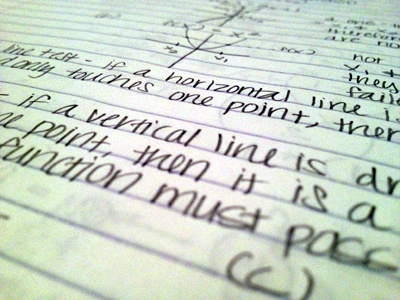 a one
are no
not
line test - if a horizontal line is
they
only touches one point, then
faile
- if a vertical line is dr
ne point, then it is a
function must pass
(c)